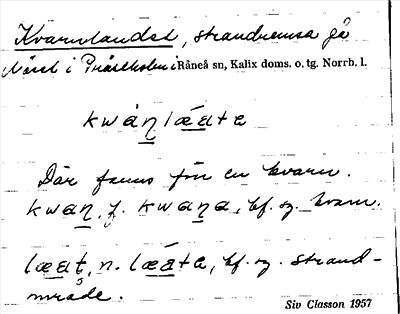 Kvarnlandet, strandremsa på
Näset i Prästholm i Råneå sn, Kalix doms. o. tg. Norrb. l.
kwáṉlǽa̱te
Där fanns förr en kvarn.
kwaṉ, f. kwaṉa, bf. sg. kvarn.
læa̱t, n. lǽa̱te, bf. sg. strand-
område.
Siv Classon 1957